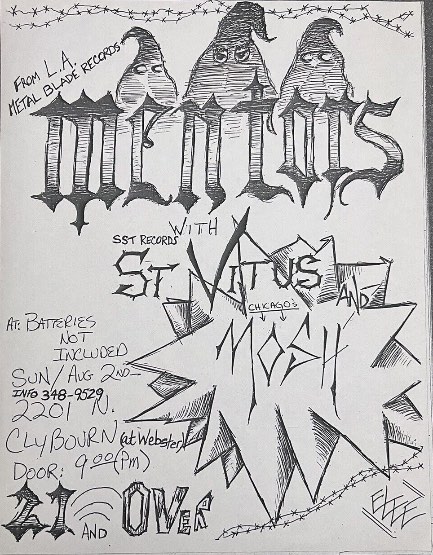 FROM L.A.
METAL BLADE RECORDS
MENTORS
WITH
SST RECORDS
ST VITUS
AND
CHICAGO'S
MOSH
AT: BATTERIES
NOT
INCLUDED
SUN/AUG 2ND
INFO 348-9529
2201 N.
CLYBOURN (at Webster)
DOOR: 9:00 (PM)
21 AND OVER